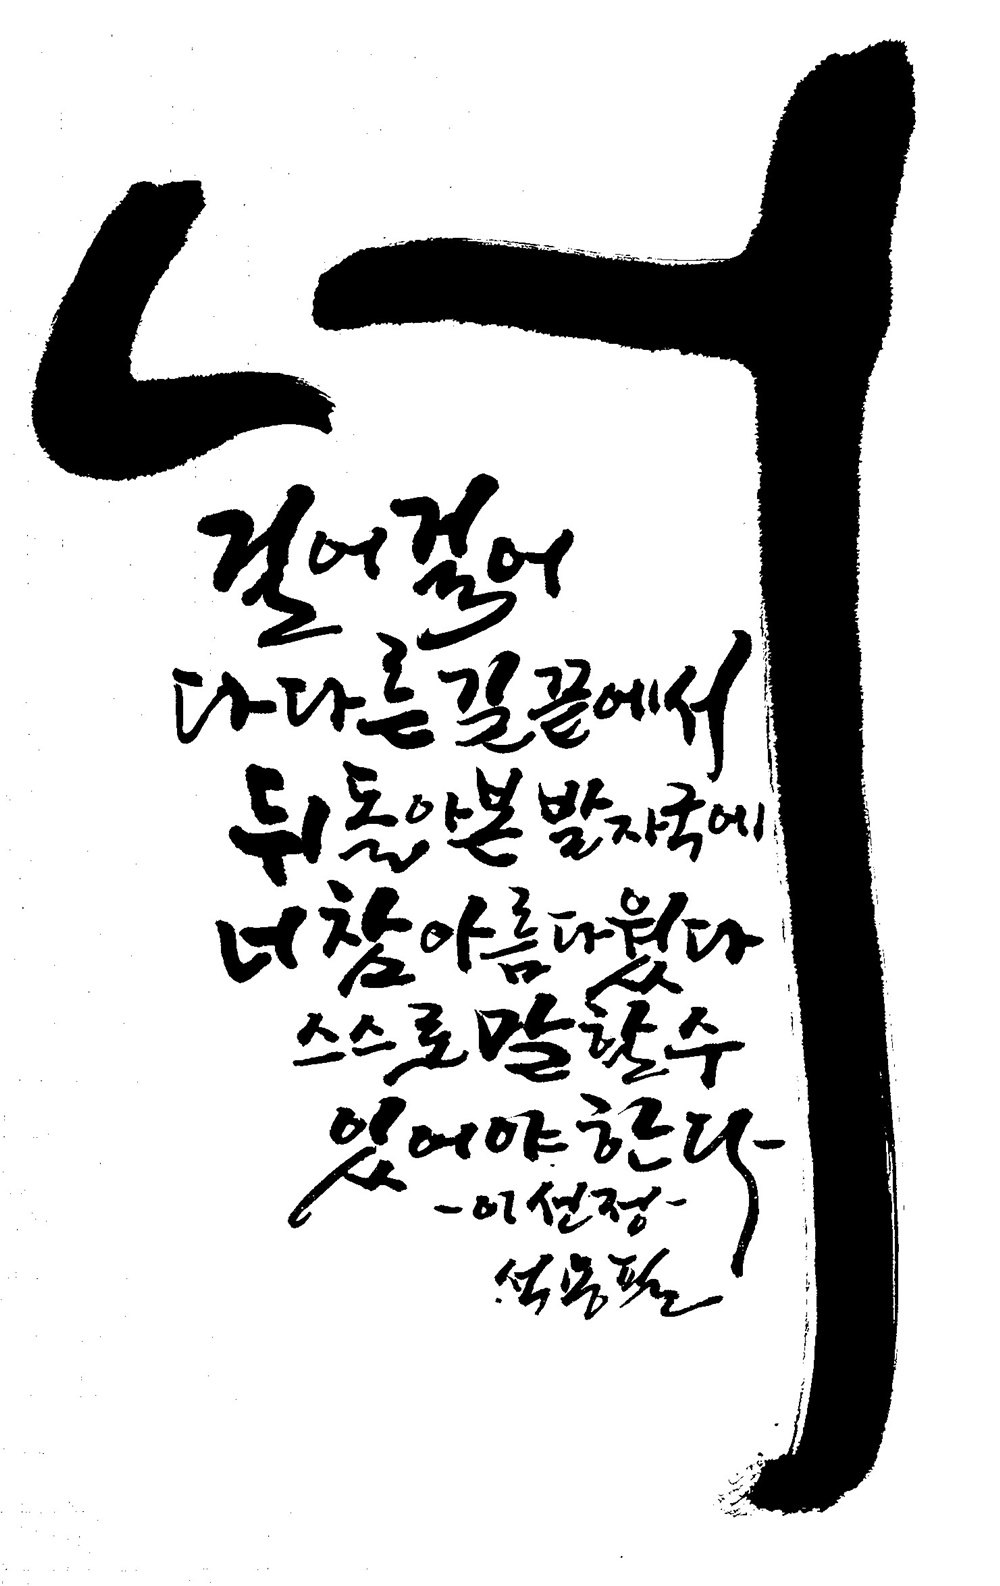 너
걸어 걸어
다다른 길 끝에서
뒤돌아본 발자국에
너 참 아름다웠다
스스로 말할 수
있어야 한다
-이선정-
석용필